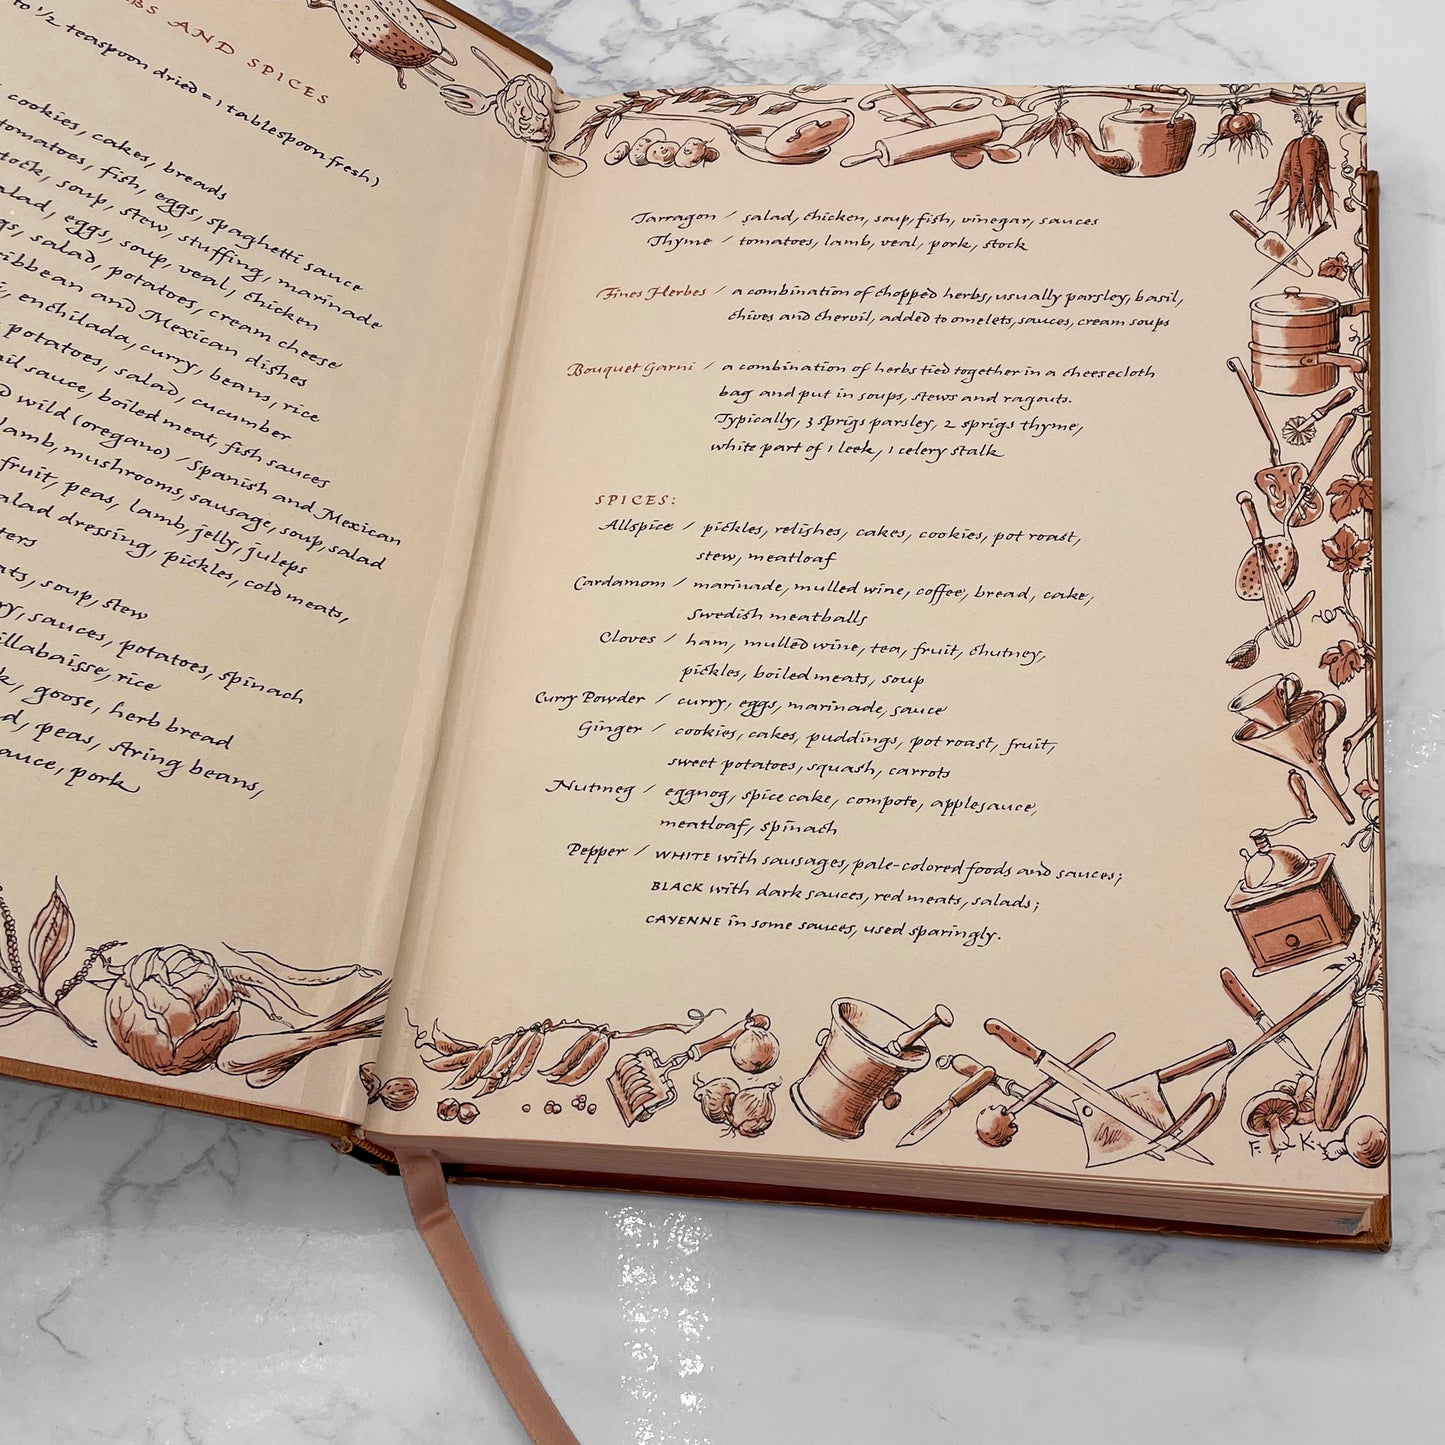 AND SPICES
to 1/2 teaspoon dried = 1 tablespoon fresh)
cookies, cakes, breads
tomatoes, fish, eggs, spaghetti sauce
stock, soup, stew, stuffing, marinade
salad, eggs, soup, veal, chicken
salad, potatoes, cream cheese
and Mexican dishes
enchilada, curry, beans, rice
potatoes, salad, cucumber
sauce, boiled meat, fish sauces
wild (oregano) / Spanish and Mexican
lamb, mushrooms, sausage, soup, salad
fruit, peas, lamb, jelly, juleps
salad dressing, pickles, cold meats,
soup, stew
sauces, potatoes, spinach
rice
goose, herb bread
peas, string beans,
sauce, pork
Tarragon / salad, chicken, soup, fish, vinegar, sauces
Thyme / tomatoes, lamb, veal, pork, stock
Fines Herbes / a combination of chopped herbs, usually parsley, basil,
chives and chervil, added to omelets, sauces, cream soups
Bouquet Garni / a combination of herbs tied together in a cheesecloth
bag and put in soups, stews and ragouts.
Typically, 3 sprigs parsley, 2 sprigs thyme,
white part of 1 leek, 1 celery stalk
SPICES:
Allspice / pickles, relishes, cakes, cookies, pot roast,
stew, meatloaf
Cardamom / marinade, mulled wine, coffee, bread, cake,
Swedish meatballs
Cloves / ham, mulled wine, tea, fruit, chutney,
pickles, boiled meats, soup
Curry Powder / curry, eggs, marinade, sauce
Ginger / cookies, cakes, puddings, pot roast, fruit,
sweet potatoes, squash, carrots
Nutmeg / eggnog, spice cake, compote, applesauce,
meatloaf, spinach
Pepper / WHITE with sausages, pale-colored foods and sauces;
BLACK with dark sauces, red meats, salads;
CAYENNE in some sauces, used sparingly.
F. K.